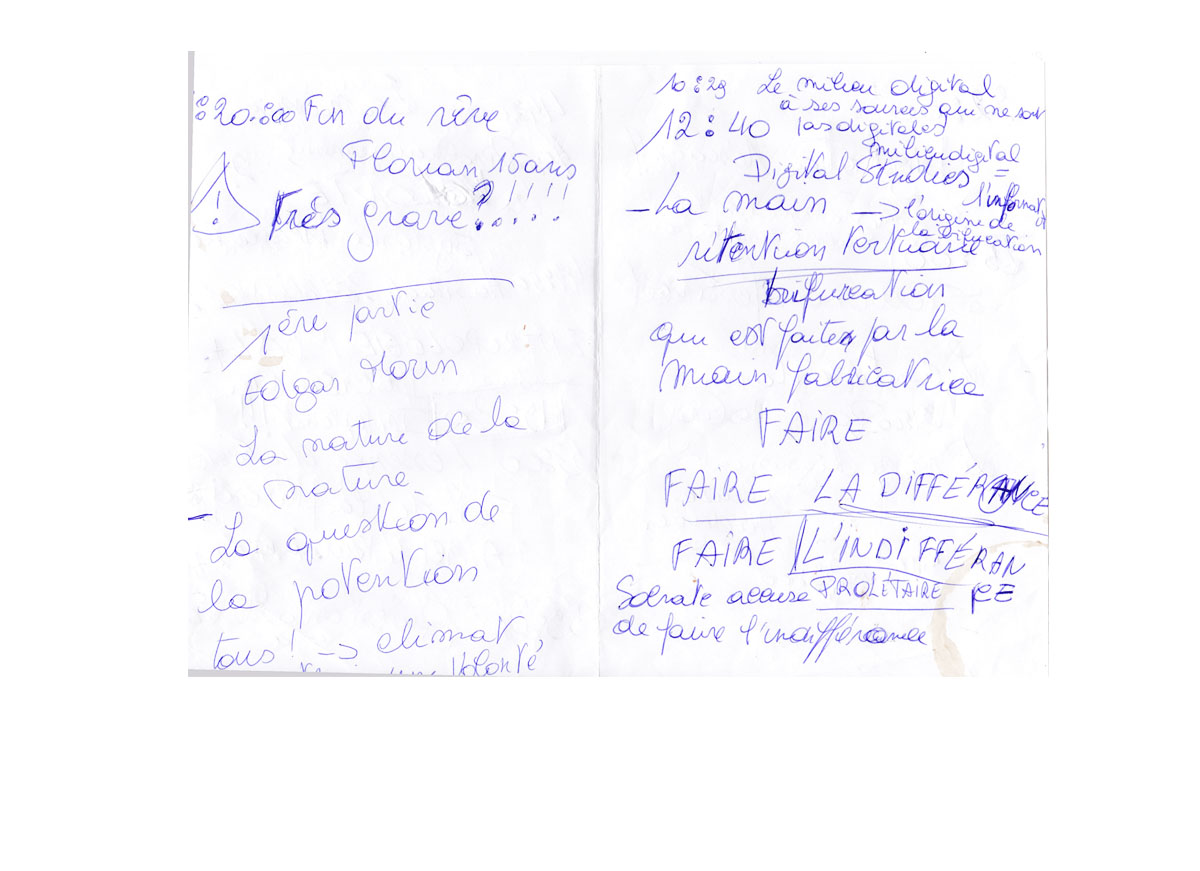 :20:00 Fin du rêve
Florian 15 ans
! Très grave?!!!!
1ère partie
Edgar Morin
La nature de la
nature
- La question de
la potention
tous! -> climat,
une volonté
10:29 Le milieu digital
à ses sources qui ne sont
12:40 pas digitales
milieu digital
Digital Studies =
l'informat
- La main -> l'origine de
la bifurcation
rétention tertiaire
bifurcation
qui est faite par la
main fabricatrice
FAIRE
FAIRE LA DIFFÉRANCE
FAIRE L'INDIFFÉRAN
CE
Socrate accuse PROLÉTAIRE
de faire l'indifférance